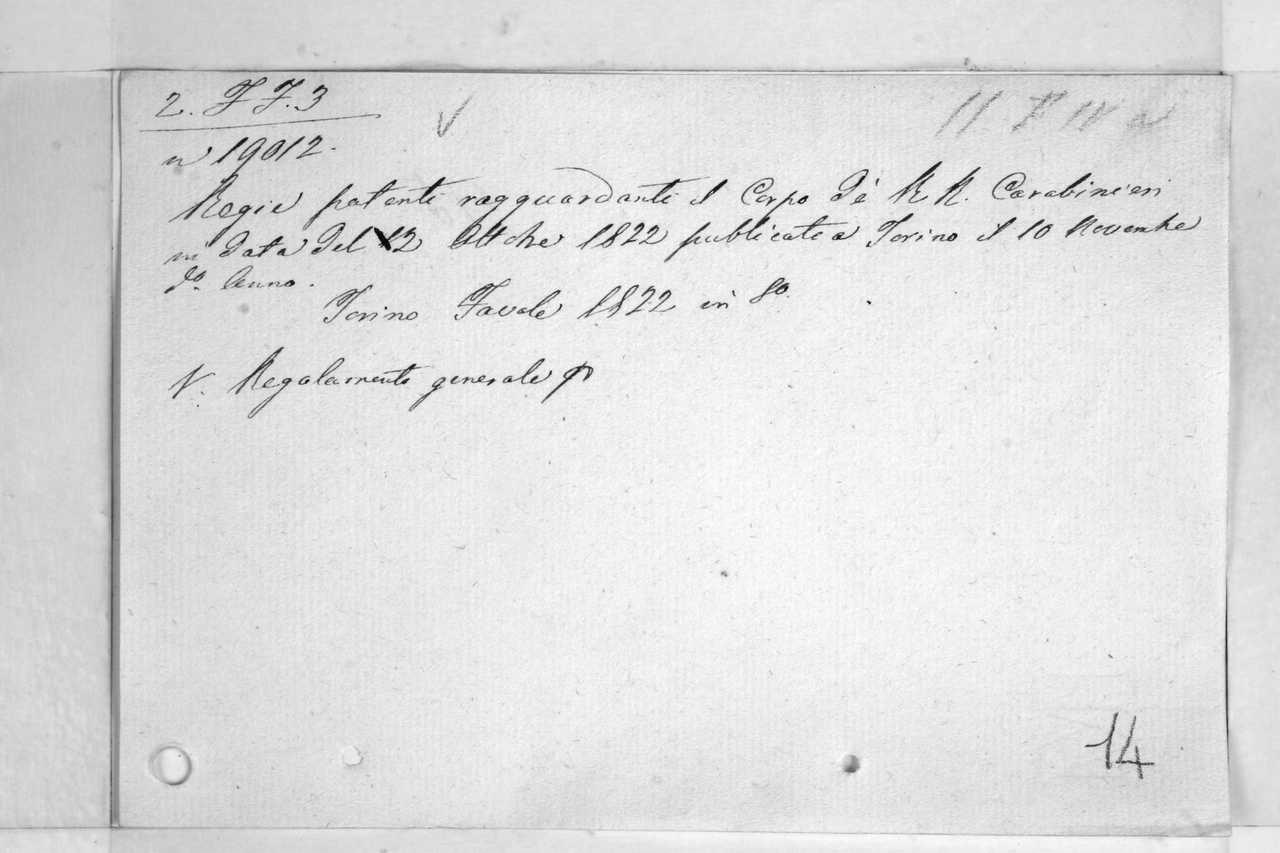 2. F F. 3
n° 19012.
Regie patenti ragguardanti il Corpo de' R R. Carabinieri
in data del 12 Ottobre 1822 publicate a Torino il 10 Novembre
do. Anno.
Torino Favale 1822 in 8o.
V. Regolamento generale
14